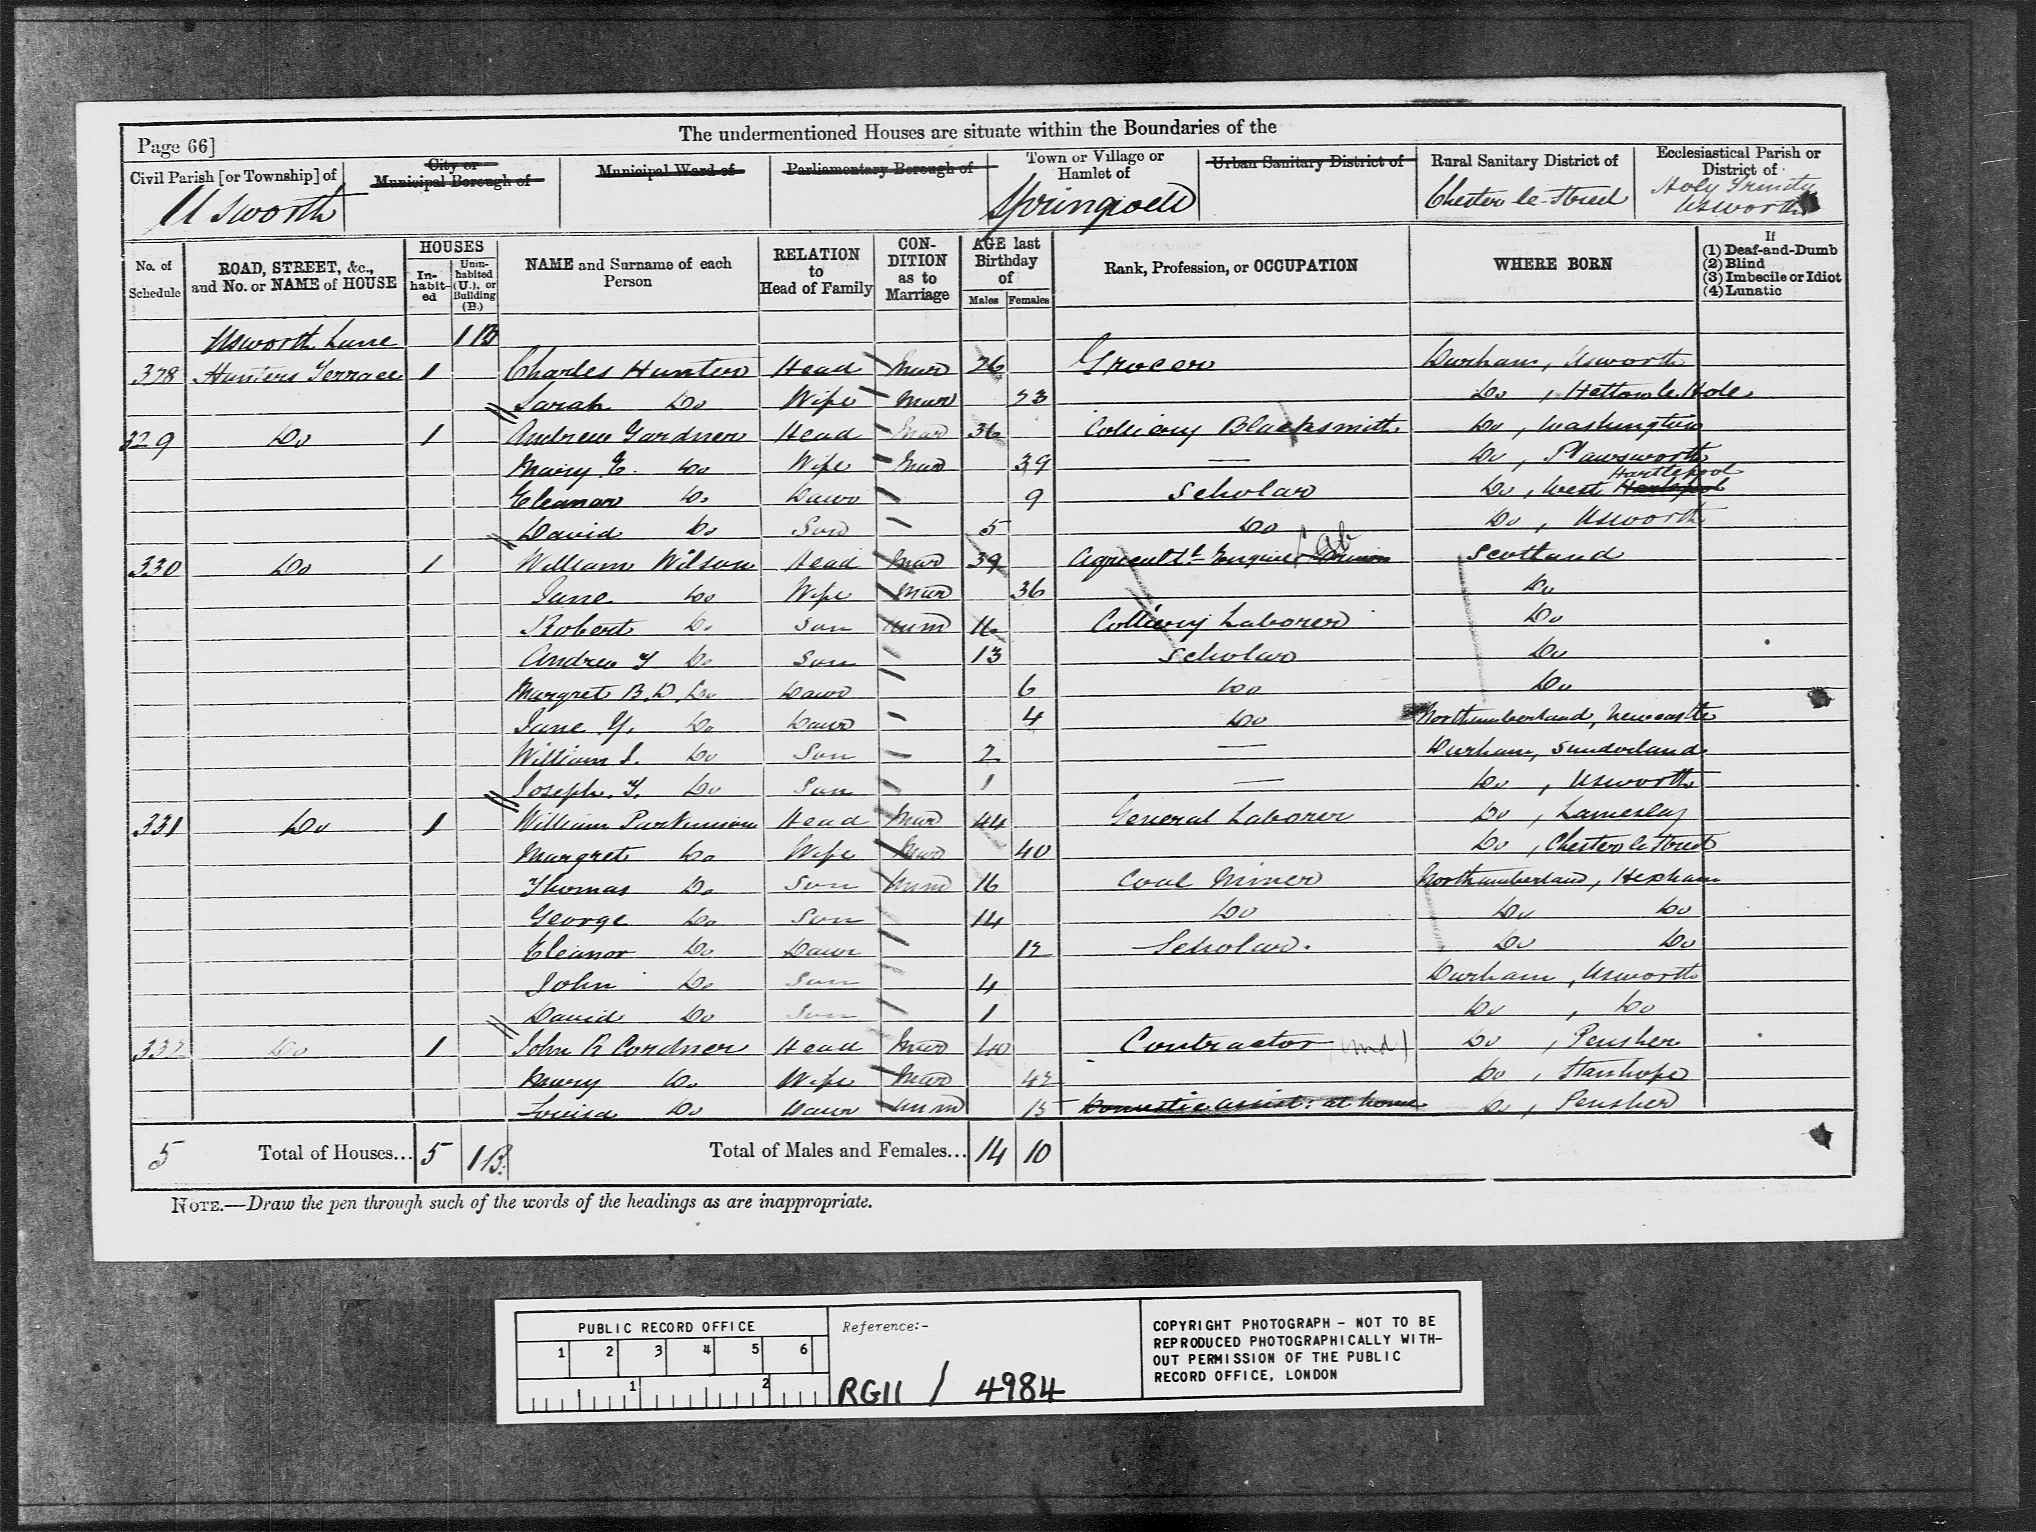 The undermentioned Houses are situate within the Boundaries of the
Page 66]
Civil Parish [or Township] of
City or Municipal Borough of
Municipal Ward of
Parliamentary Borough of
Town or Village or Hamlet of
Urban Sanitary District of
Rural Sanitary District of
Ecclesiastical Parish or District of
Usworth
Springwell
Chester le Street
Holy Trinity Usworth
No. of Schedule
ROAD, STREET, &c., and No. or NAME of HOUSE
HOUSES
In-habit-ed
Unin-habited (U.), or Building (B.)
NAME and Surname of each Person
RELATION to Head of Family
CON-DITION as to Marriage
AGE last Birthday of
Males
Females
Rank, Profession, or OCCUPATION
WHERE BORN
If
(1) Deaf-and-Dumb
(2) Blind
(3) Imbecile or Idiot
(4) Lunatic
Usworth Lane 1 B
328 Hunters Terrace 1 Charles Hunter Head Mar 26 Grocer Durham, Usworth
Sarah Do Wife Mar 23 Do, Hetton le Hole
329 Do 1 Andrew Gardner Head Mar 36 Colliery Blacksmith Do, Washington
Mary E. Do Wife Mar 39 — Do, Plawsworth
Eleanor Do Dawr 9 Scholar Do, West Hartlepool
David Do Son 5 Do Do, Usworth
330 Do 1 William Wilson Head Mar 39 Agricult l Engine Lab Scotland
Jane Do Wife Mar 36 Do
Robert Do Son Unm 16 Colliery Laborer Do
Andrew Y Do Son 13 Scholar Do
Margret B.D. Do Dawr 6 Do Do
Jane Y. Do Dawr 4 Do Northumberland, Newcastle
William I. Do Son 2 — Durham, Sunderland
Joseph Y. Do Son 1 — Do, Usworth
331 Do 1 William Parkinson Head Mar 44 General Laborer Do, Lamesley
Margret Do Wife Mar 40 Do, Chester le Street
Thomas Do Son Unm 16 Coal Miner Northumberland, Hexham
George Do Son 14 Do Do Do
Eleanor Do Dawr 12 Scholar. Do Do
John Do Son 4 Durham, Usworth
David Do Son 1 Do, Do
332 Do 1 John R Cordner Head Mar 40 Contractor Do, Pensher
Mary Do Wife Mar 42 Do, Stanhope
Louisa Do Dawr Unm 15 Domestic assist: at home Do, Pensher
5 Total of Houses... 5 1 B. Total of Males and Females... 14 10
NOTE.—Draw the pen through such of the words of the headings as are inappropriate.
PUBLIC RECORD OFFICE
1 2 3 4 5 6
1 2
Reference:-
RG11 / 4984
COPYRIGHT PHOTOGRAPH - NOT TO BE
REPRODUCED PHOTOGRAPHICALLY WITH-
OUT PERMISSION OF THE PUBLIC
RECORD OFFICE, LONDON